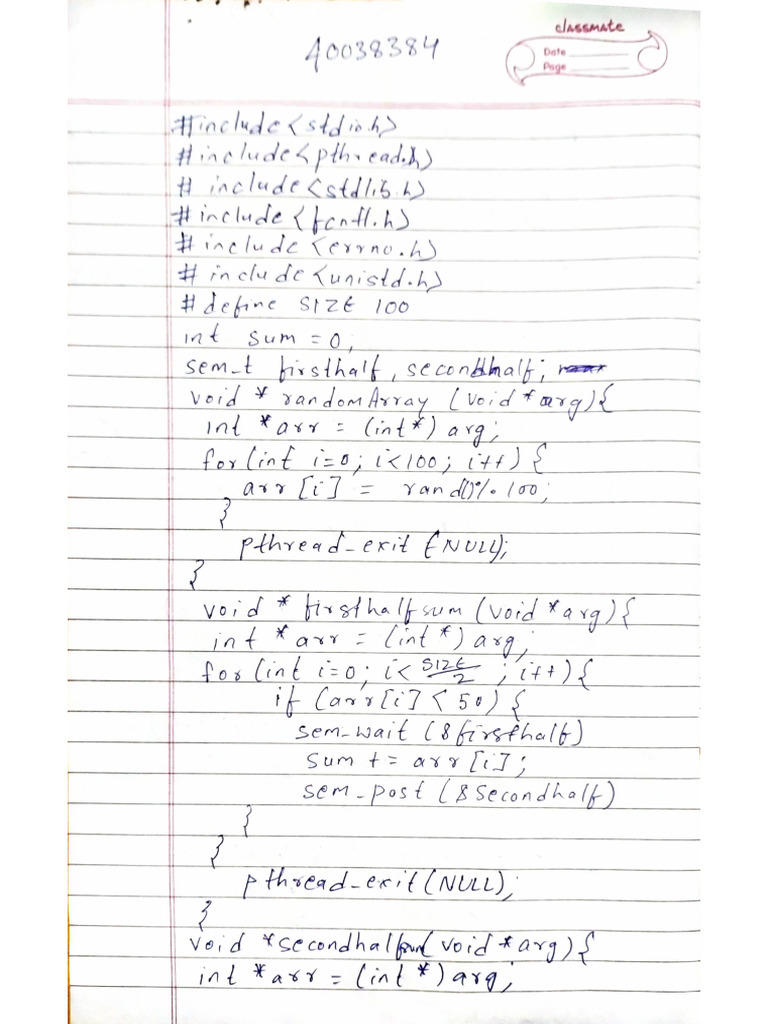 classmate
Date
Page
40038384
#include<stdio.h>
#include<pthread.h>
# include<stdlib.h>
#include<fcntl.h>
# include<errno.h>
# include<unistd.h>
# define SIZE 100
int sum = 0;
sem_t firsthalf, secondhalf;
void * randomArray (void *arg){
int *arr = (int*) arg;
for(int i=0; i<100; i++) {
arr [i] = rand()%100;
}
pthread_exit (NULL);
}
void * firsthalfsum (void *arg){
int *arr = (int*) arg;
for (int i=0; i< SIZE/2 ; i++){
if (arr[i] < 50) {
sem_wait (&firsthalf)
sum += arr [i];
sem_post (&secondhalf)
}
}
pthread_exit(NULL);
}
void *secondhalfsum(void *arg){
int *arr = (int *) arg;